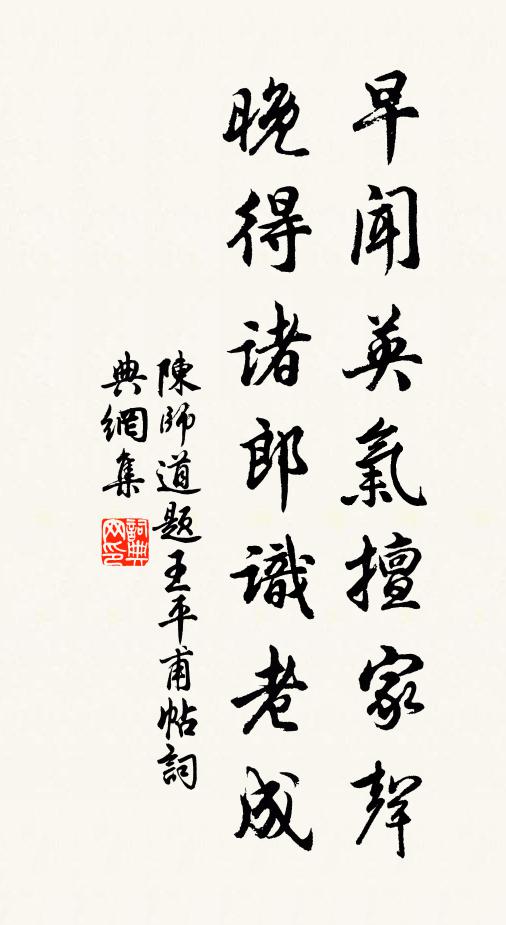 早聞英氣擅家聲
晚得諸郎識老成
陳師道題王平甫帖詞
典網集
詞典網印